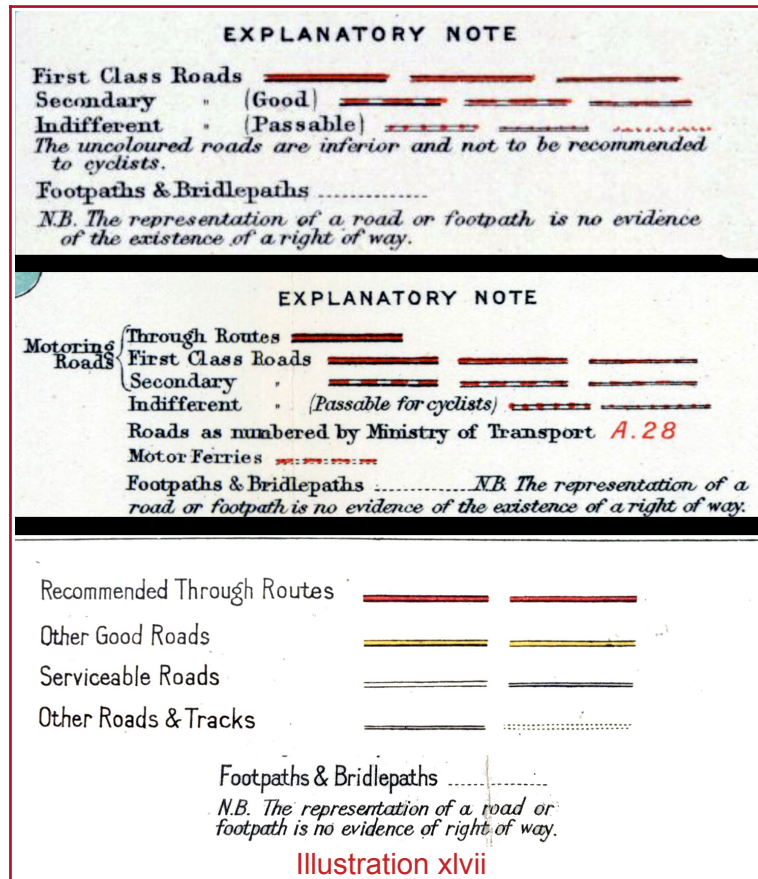 EXPLANATORY NOTE
First Class Roads
Secondary " (Good)
Indifferent " (Passable)
The uncoloured roads are inferior and not to be recommended
to cyclists.
Footpaths & Bridlepaths ...............
N.B. The representation of a road or footpath is no evidence
of the existence of a right of way.
EXPLANATORY NOTE
Motoring Roads
Through Routes
First Class Roads
Secondary "
Indifferent " (Passable for cyclists)
Roads as numbered by Ministry of Transport A.28
Motor Ferries
Footpaths & Bridlepaths ............... N.B. The representation of a
road or footpath is no evidence of the existence of a right of way.
Recommended Through Routes
Other Good Roads
Serviceable Roads
Other Roads & Tracks
Footpaths & Bridlepaths ...............
N.B. The representation of a road or
footpath is no evidence of right of way.
Illustration xlvii